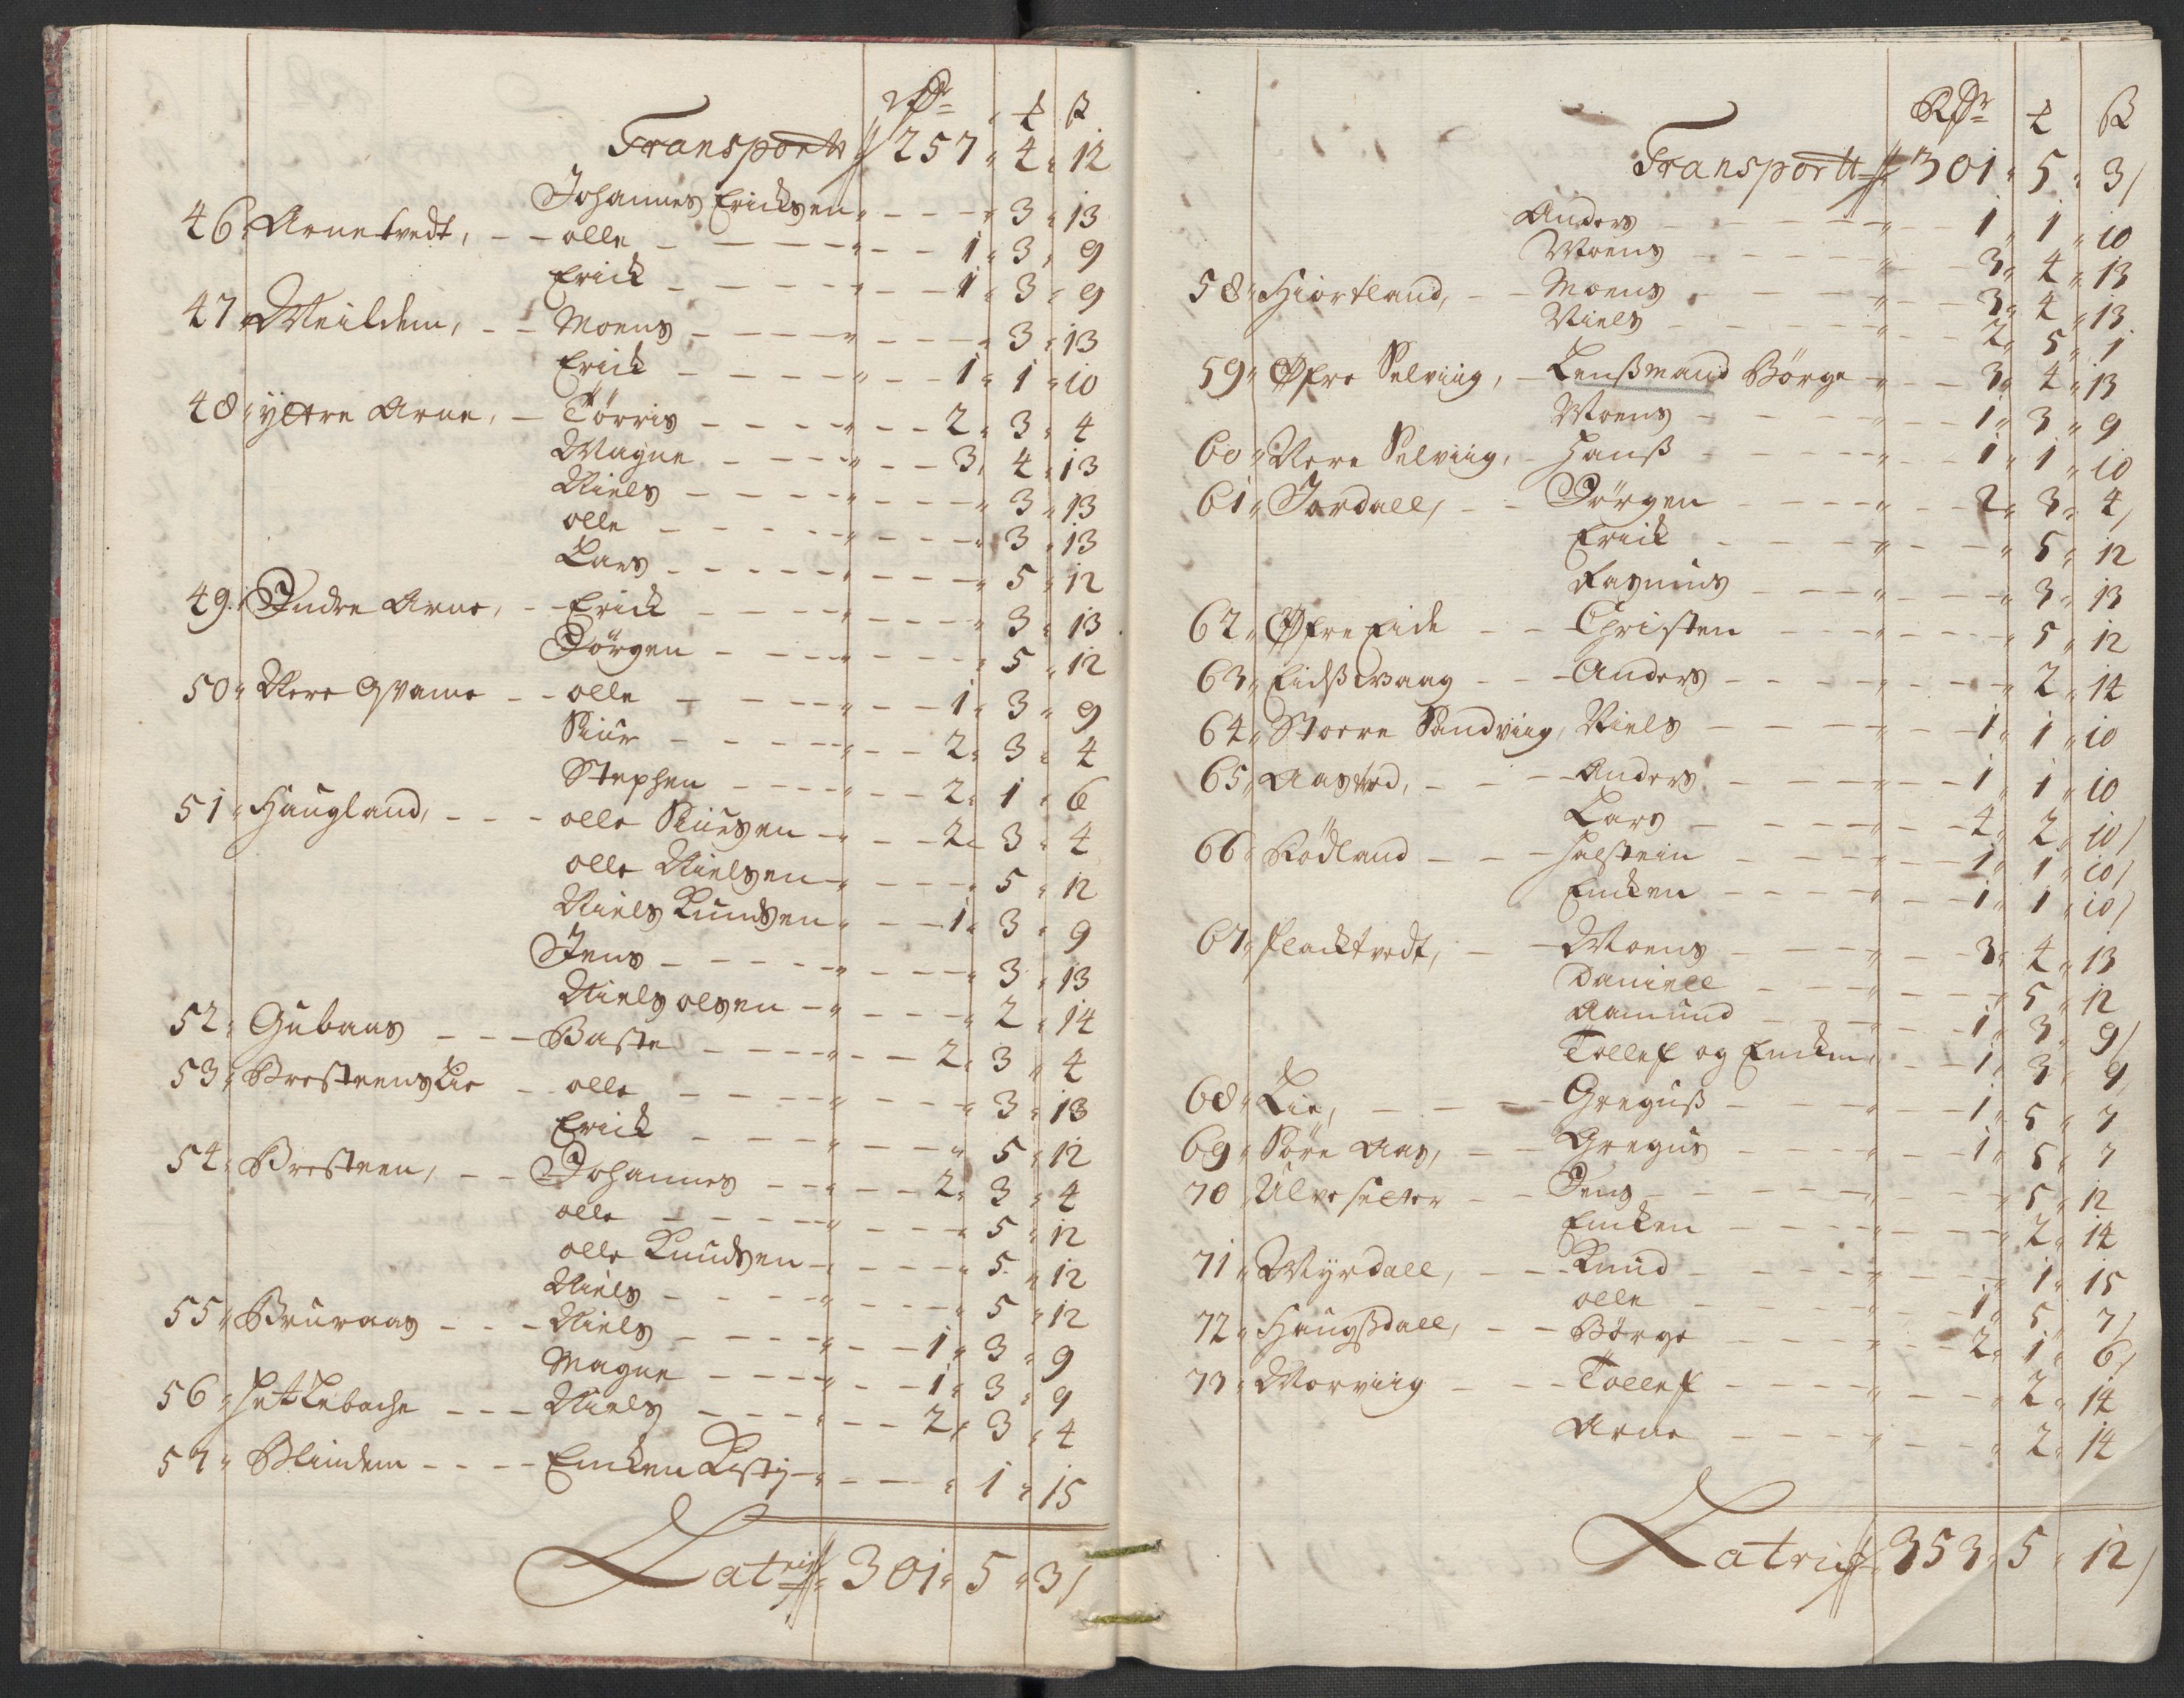 Rdr ₰ ß
Transport 257 " 4 " 12
Johannes Ericksen " - - - " 3 " 13
46 " Arnetvedt, - - olle - - - " - - 1 " 3 " 9
Erick - - - " - - 1 " 3 " 9
47 " Meildem, - - Moens - - - " - - - " 3 " 13
Erick - - - " - - 1 " 1 " 10
48 " yttre Arne, - Törris - - - " - - 2 " 3 " 4
Magne - - - " - - 3 " 4 " 13
Niels - - - " - - - " 3 " 13
olle - - - " - - - " 3 " 13
Lars - - - " - - - " 5 " 12
49 " Indre Arne, - - Erick - - - " - - - " 3 " 13
Jörgen - - - " - - - " 5 " 12
50 " Nere Qvame - - olle - - - " - - 1 " 3 " 9
Siur - - - " - - 2 " 3 " 4
Stephen - - - " - - 2 " 1 " 6
51 " Haugland, - - - olle Siursen - " - - 2 " 3 " 4
olle Nielsen - " - - - " 5 " 12
Niels Knudsen " - - 1 " 3 " 9
Jens - - - " - - - " 3 " 13
Niels olsen - " - - - " 2 " 14
52 " Gubaas - - - Baste - - - " - - 2 " 3 " 4
53 " Brosteens Lie - olle - - - " - - - " 3 " 13
Erick - - - " - - - " 5 " 12
54 " Brosteen, - - Johannes - - " - - 2 " 3 " 4
olle - - - " - - - " 5 " 12
olle Knudsen - " - - - " 5 " 12
Niels - - - " - - - " 5 " 12
55 " Bruraas - - - Niels - - - " - - 1 " 3 " 9
Magne - - - " - - 1 " 3 " 9
56 " Hetlebache - - - Niels - - - " - - 2 " 3 " 4
57 " Blindem - - - Emken - " - - - " 1 " 15
Latris 301 " 5 " 3/
Rdr ₰ ß
Transport 301 " 5 " 3/
Anders - - - " - - 1 " 1 " 10
Moens - - - " - - 3 " 4 " 13
58 " Hiortland, - - Moens - - - " - - 3 " 4 " 13
Niels - - - " - - 2 " 5 " 1
59 " Øfre Selviig, - Lensßmand Börge " - - 3 " 4 " 13
Moens - - - " - - 1 " 3 " 9
60 " Nere Selviig, - Hanß - - - " - - 1 " 1 " 10
61 " Jordall, - - Jörgen - - - " - - 2 " 3 " 4/
Erick - - - " - - - " 5 " 12
Rasmus - - - " - - - " 3 " 13
62 " Øfre Eide - - Christen - - - " - - - " 5 " 12
63 " Eidßwaag - - - Anders - - - " - - - " 2 " 14
64 " Stoere Sandviig, Niels - - - " - - 1 " 1 " 10
65 " Aastved, - - - Anders - - - " - - 1 " 1 " 10
Lars - - - " - - 4 " 2 " 10/
66 " Rödland - - - Halstein - - - " - - 1 " 1 " 10/
Emken - - - " - - 1 " 1 " 10/
67 " Flacktvedt, - - Moens - - - " - - 3 " 4 " 13
Daniell - - - " - - - " 5 " 12
Aamund - - - " - - 1 " 3 " 9/
Tollef og Emken " - - 1 " 3 " 9
68 " Lie, - - - Greguß - - - " - - 1 " 5 " 7
69 " Söre Aas, - - Gregus - - - " - - 1 " 5 " 7
70 " Ulvesetter - - Jens - - - " - - - " 5 " 12
Emken - - - " - - - " 2 " 14
71 " Myrdall, - - - Knud - - - " - - - " 1 " 15
olle - - - " - - 1 " 5 " 7/
72 " Haugßdall, - - Börge - - - " - - 2 " 1 " 6/
73 " Morviig - - - Tollef - - - " - - - " 2 " 14
Arne - - - " - - - " 2 " 14
Latris 353 " 5 " 12/